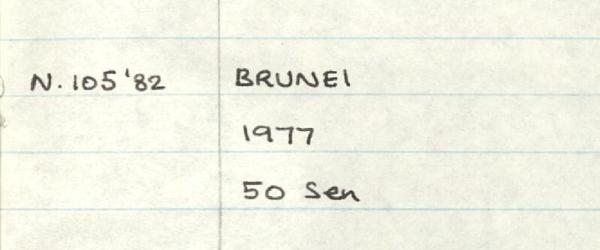 N.105'82 BRUNEI
1977
50 Sen